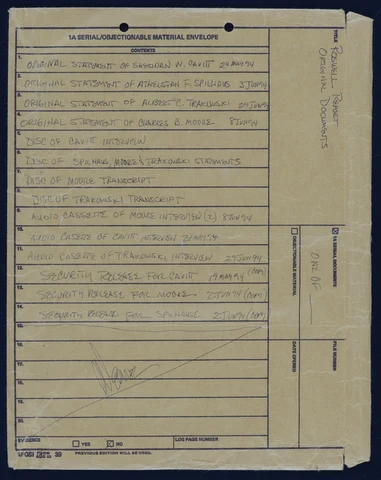 1A SERIAL/OBJECTIONABLE MATERIAL ENVELOPE
CONTENTS
1. ORIGINAL STATEMENT OF SHERIDAN W. CAVITT 24 MAY 94
2. ORIGINAL STATEMENT OF ATHELSTAN F. SPILHAUS 3 JUN 94
3. ORIGINAL STATEMENT OF ALBERT C. TRAKOWSKI 29 JUN 94
4. ORIGINAL STATEMENT OF CHARLES B. MOORE 8 JUN 94
5. DISC OF CAVITT INTERVIEW
6. DISC OF SPILHAUS, MOORE & TRAKOWSKI STATEMENTS
7. DISC OF MOORE TRANSCRIPT
8. DISC OF TRAKOWSKI TRANSCRIPT
9. AUDIO CASSETTE OF MOORE INTERVIEW (2) 8 JUN 94
10. AUDIO CASETTE OF CAVITT INTERVIEW 24 MAY 94
11. AUDIO CASETTE OF TRAKOWSKI INTERVIEW 29 JUN 94
12. SECURITY RELEASE FOR CAVITT 19 MAY 94 (COPY)
13. SECURITY RELEASE FOR MOORE 2 JUN 94 (COPY)
14. SECURITY RELEASE FOR SPILHAUS 2 JUN 94 (COPY)
15.
16.
17.
18.
19.
20.
EVIDENCE
YES
NO
LOG PAGE NUMBER
AFOSI FORM 39
PREVIOUS EDITION WILL BE USED.
TITLE
ROSWELL REPORT
ORIGINAL DOCUMENTS
1A SERIAL DOCUMENTS
OBJECTIONABLE MATERIAL
ONE OF
FILE NUMBER
DATE OPENED